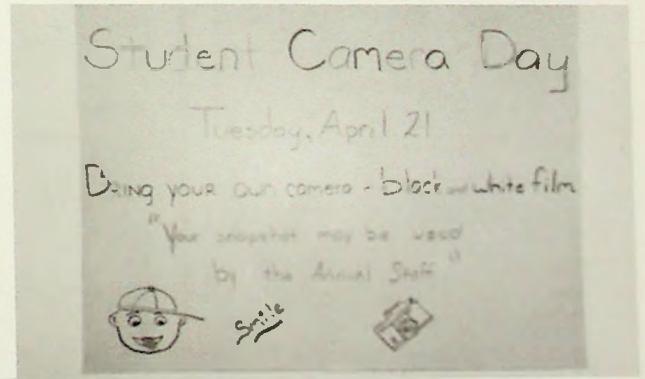 Student Camera Day
Tuesday, April 21
Bring your own camera - black and white film
"Your snapshot may be used
by the Annual Staff"
Smile